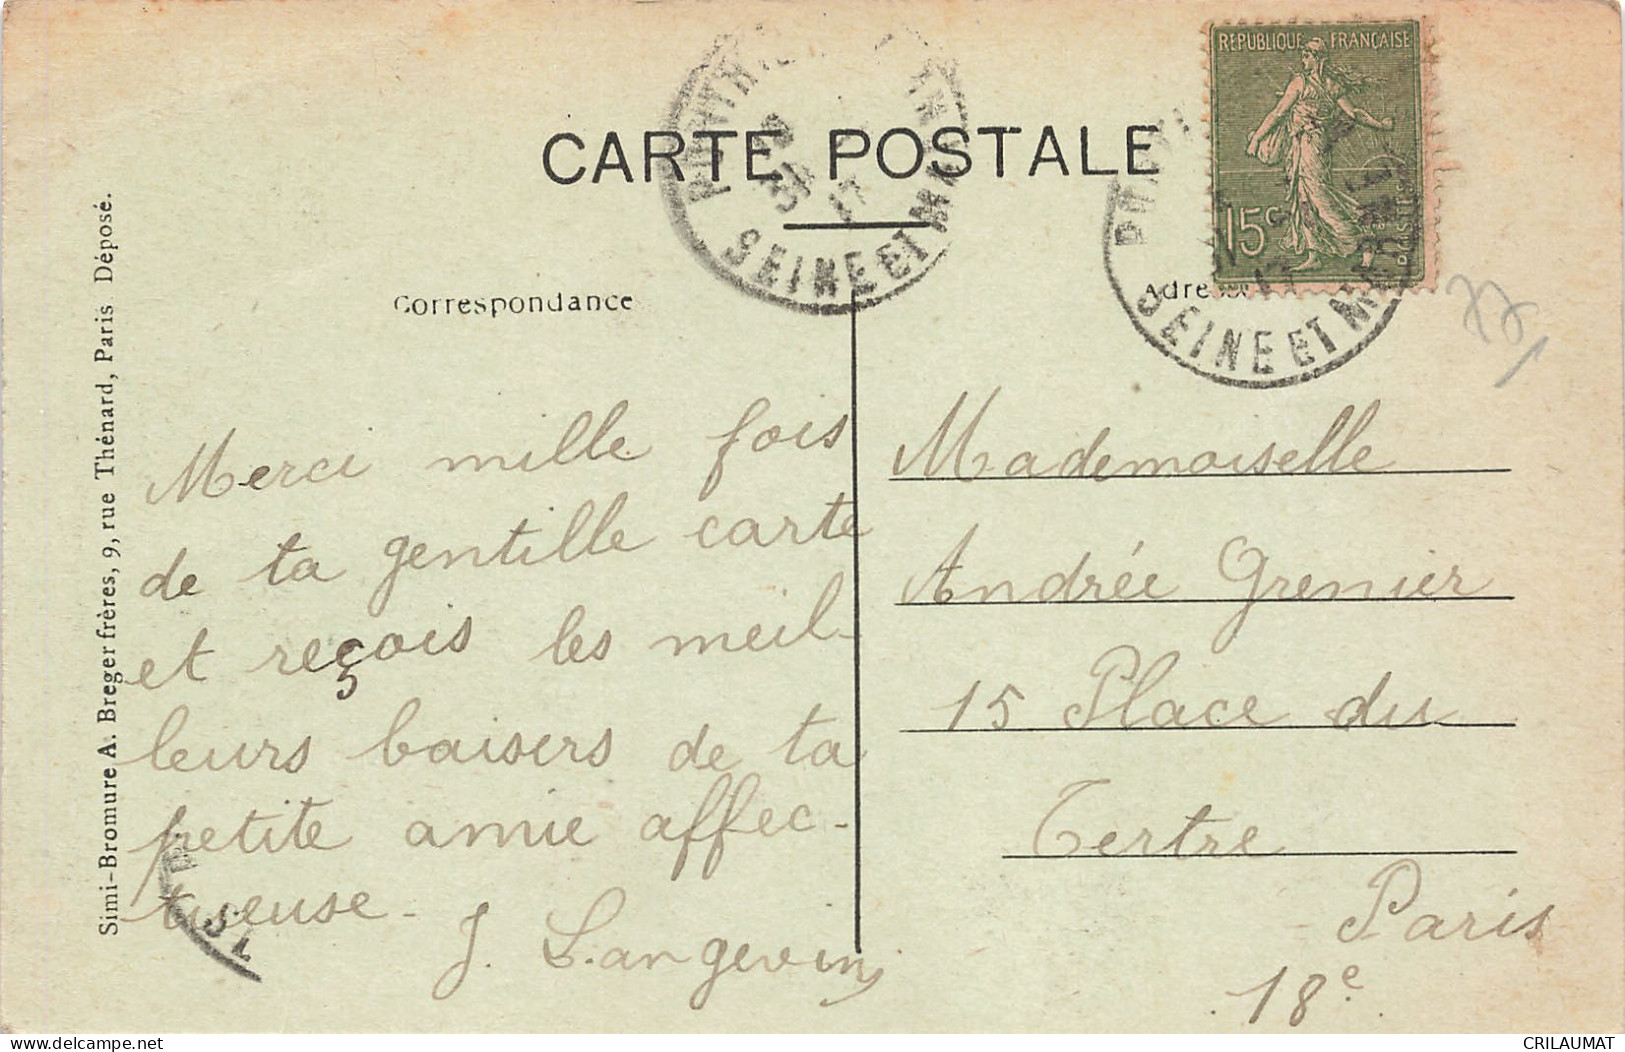 CARTE POSTALE
REPUBLIQUE FRANÇAISE
15c
SEINE ET M
SEINE ET M
Correspondance
Adresse
Merci mille fois
de ta gentille carte
et reçois les meil-
leurs baisers de ta
petite amie affec-
tueuse -
J. Langevin
Mademoiselle
Andrée Grenier
15 Place du
Tertre
Paris
18e
Simi-Bromure A. Breger frères, 9, rue Thénard, Paris Déposé.
delcampe.net
CRILAUMAT